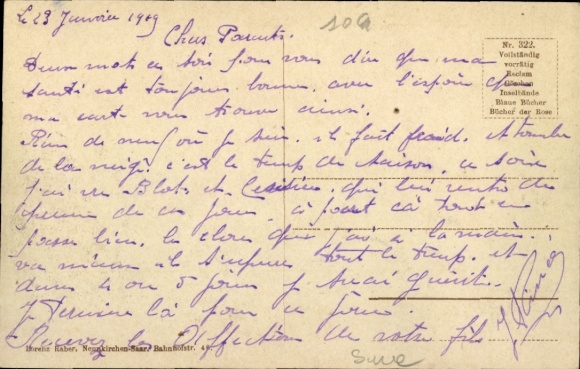 Le 23 Janvier 1919
Chers Parents.
Deux mots ce soir pour vous dire que ma
santé est toujours bonne, avec l'espoir que
ma carte vous trouve ainsi.
Rien de neuf où je suis. il fait froid. et tombe
de la neige. c'est le temp de saison, ce soir
j'ai vu Blots et qui lui rentre de
perme de ce jour, à part cà tout ce
passe bien. le clou que j'ai à la main.
va mieux il tout le temp. et
dans 4 ou 5 jours je serai guérit.
Je termine là pour ce jour.
Recevez les Affections de votre fils
109
Nr. 322.
Vollständig
vorrätig
Reclam
Göschen
Inselbände
Blaue Bücher
Bücher der Rose
Lorenz Raber, Neunkirchen-Saar, Bahnhofstr. 4